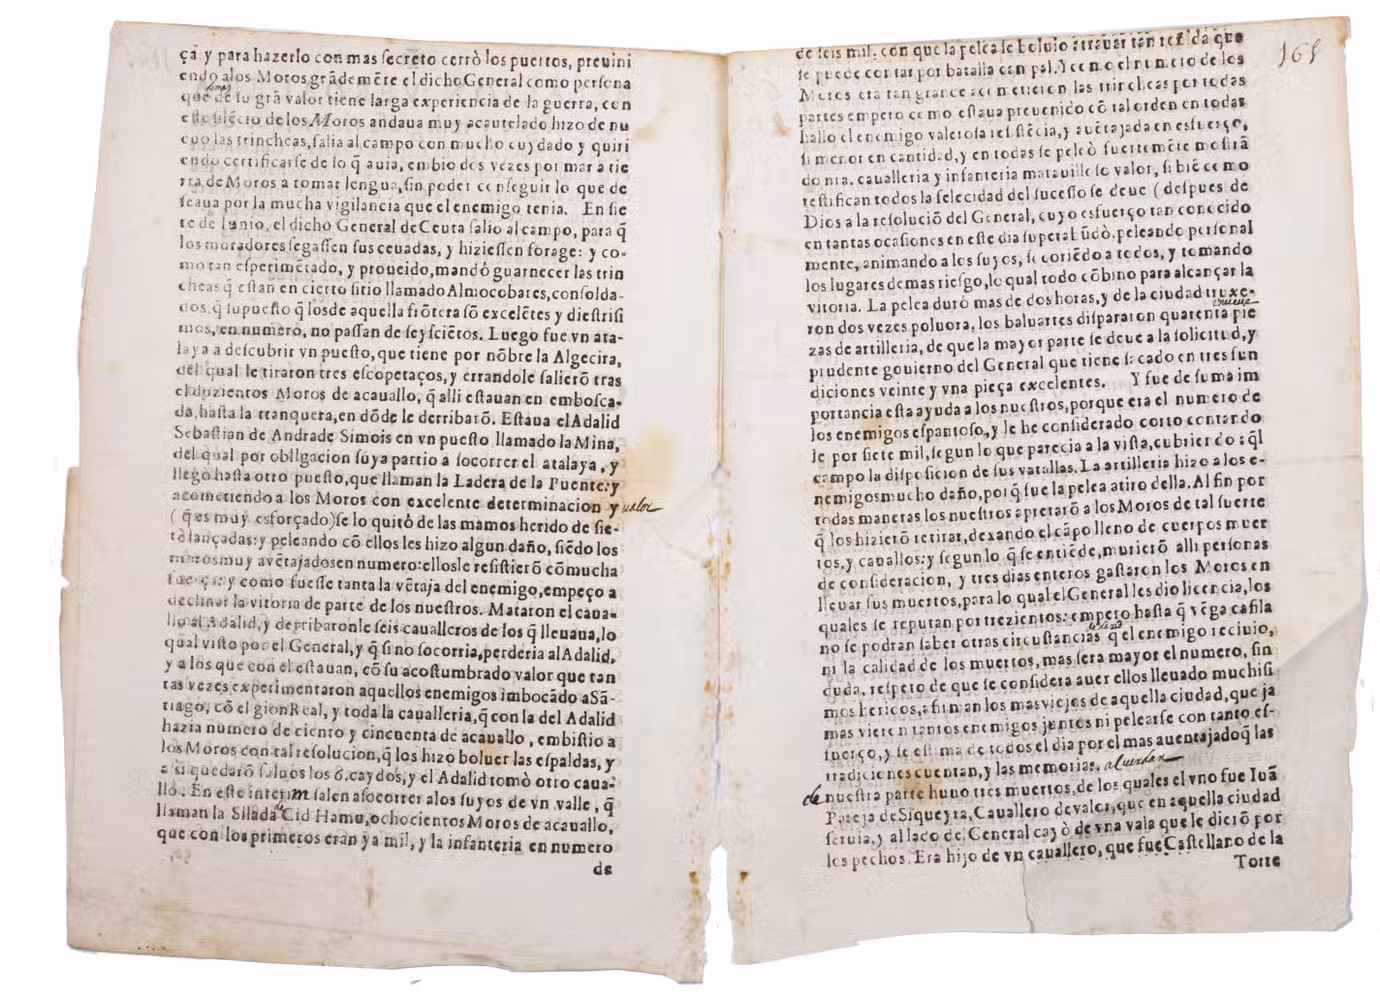 çã y para hazerlo con mas ſecreto cerrò los puertos, preuini
endo alos Moros grãdemẽte el dicho General como perſona
demas
que de ſu grã valor tiene larga experiencia de la guerra, con
eſte ſilẽcio de los Moros andaua muy acautelado hizo de nu
euo las trincheas, ſalia al campo con mucho cuydado y quiri
endo certificarſe de lo q̃ auia, embio dos vezes por mar a tie
rra de Moros a tomar lengua, ſin poder conſeguir lo que de
ſeaua por la mucha vigilancia que el enemigo tenia. En ſie
te de Iunio, el dicho General de Ceuta ſalio al campo, para q̃
los moradores ſegaſſen ſus ceuadas, y hizieſſen forage: y co-
mo tan eſperimẽtado, y proueido, mandó guarnecer las trin
cheas q̃ eſtan en cierto ſitio llamado Almocobares, con ſolda-
dos, q̃ ſupueſto q̃ los de aquella frõtera ſõ excelẽtes y dieſtriſi
mos, en numero, no paſſan de ſeyſciẽtos. Luego fue vn ata-
laya a deſcubrir vn pueſto, que tiene por nõbre la Algecira,
del qual le tiraron tres eſcopetaços, y errandole ſalierõ tras
el dozientos Moros de acauallo, q̃ alli eſtauan en emboſca-
da, haſta la tranquera, en dõde le derribarõ. Eſtaua el Adalid
Sebaſtian de Andrade Simois en vn pueſto llamado la Mina,
del qual por obligacion ſuya partio a ſocorrer el atalaya, y
llegò haſta otro pueſto, que llaman la Ladera de la Puente: y
acometiendo a los Moros con excelente determinacion y valor
( q̃ es muy esforçado) ſe lo quitò de las mamos herido de ſie-
te lançadas: y peleando cõ ellos les hizo algun daño, ſiẽdo los
moros muy avẽtajados en numero: ellos le reſiſtierõ cõ mucha
fuerça: y como fueſſe tanta la vẽtaja del enemigo, empeço a
declinar la vitoria de parte de los nueſtros. Mataron el caua-
llo al Adalid, y derribaronle ſeis caualleros de los q̃ lleuaua, lo
qual viſto por el General, y q̃ ſi no ſocorria, perderia al Adalid,
y a los que con el eſtauan, cõ ſu acoſtumbrado valor que tan
tas vezes experimentaron aquellos enemigos imbocãdo a Sã-
tiago, cõ el gion Real, y toda la caualleria, q̃ con la del Adalid
hazia numero de ciento y cincuenta de acauallo, embiſtio a
los Moros con tal reſolucion, q̃ los hizo boluer las eſpaldas, y
a ſi quedarõ ſaluos los 6. caydos, y el Adalid tomò otro caua-
llo. En eſte interim ſalen a ſocorrer a los ſuyos de vn valle, q̃
de
llaman la Silada Cid Hamu, ochocientos Moros de acauallo,
que con los primeros eran ya mil, y la infanteria en numero
de
165
de ſeis mil: con que la pelea ſe boluio a trauar tan reñida que
ſe puede contar por batalla canpal. Y como el numero de los
Moros era tan grande acometieron las trincheas por todas
partes empero como eſtaua preuenido cõ tal orden en todas
hallo el enemigo valeroſa reſiſtẽcia, y auẽtajada en esfuerço,
ſi menor en cantidad, y en todas ſe peleò fuertemẽte moſtrã
do nra. caualleria y infanteria marauilloſo valor, ſi biẽ como
teſtifican todos la felecidad del ſuceſſo ſe deue ( deſpues de
Dios a la reſoluciõ del General, cuyo esfuerço tan conocido
en tantas ocaſiones en eſte dia ſuperabũdò, peleando perſonal
mente, animando a los ſuyos, ſocoriẽdo a todos, y tomando
los lugares de mas rieſgo, lo qual todo cõbino para alcançar la
vitoria. La pelea durò mas de dos horas, y de la ciudad truxe-
y nueue
ron dos vezes poluora, los baluartes diſpararon quarenta pie
zas de artilleria, de que la mayor parte ſe deue a la ſolicitud, y
prudente gouierno del General que tiene ſacado en tres fun
diciones veinte y vna pieça excelentes. Y fue de ſuma im
portancia eſta ayuda a los nueſtros, porque era el numero de
los enemigos eſpantoſo, y le he conſiderado corto contando
le por ſiete mil, ſegun lo que parecia a la viſta, cubriendo aq̃l
campo la diſpoſicion de ſus vatallas. La artilleria hizo a los e-
nemigos mucho daño, por q̃ fue la pelea a tiro della. Al fin por
todas maneras los nueſtros apretarõ a los Moros de tal ſuerte
q̃ los hizierõ retirar, dexando el cãpo lleno de cuerpos muer
tos, y cauallos: y ſegun lo q̃ ſe entiẽde, murierõ alli perſonas
de conſideracion, y tres dias enteros gaſtaron los Moros en
lleuar ſus muertos, para lo qual el General les dio licencia, los
quales ſe reputan por trezientos: empero haſta q̃ vẽga cafila
no ſe podran ſaber otras circuſtancias q̃ el enemigo reciuio,
ni la calidad de los muertos, mas ſera mayor el numero, ſin
duda, reſpeto de que ſe conſidera auer ellos lleuado muchiſi
mos heridos, afirman los mas viejos de aquella ciudad, que ja
mas vieron tantos enemigos juntos ni pelearſe con tanto eſ-
fuerço, y ſe eſtima de todos el dia por el mas auentajado q̃ las
tradiciones cuentan, y las memorias. acuerdan
de nueſtra parte huuo tres muertos, de los quales el vno fue Iuã
Pareja de Siqueyra, Cauallero de valor, que en aquella ciudad
ſeruia, y al lado del General cayò de vna vala que le dierõ por
los pechos. Era hijo de vn cauallero, que fue Caſtellano de la
Torre